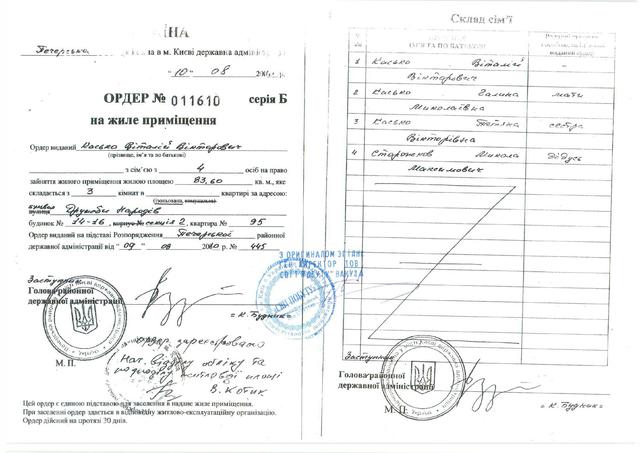 Печерська в м. Києві державна адмін
"10" 08
ОРДЕР № 011610 серія Б
на жиле приміщення
Ордер виданий Касько Віталієві Вікторович
(прізвище, ім'я та по батькові)
з сім'єю з 4 осіб на право
зайняття жилого приміщення жилою площею 83,60 кв. м., яке
складається з 3 кімнат в квартирі за адресою:
бульвар Дружби Народів
будинок № 14-16, секція 2, квартира № 95
Ордер виданий на підставі Розпорядження Печерської районної
державної адміністрації від "09" 08 2010 р. № 445
З ОРИГИНАЛОМ ЗГІДНЕ
ДИРЕКТОР ТОВ
Заступник
Голова районної
державної адміністрації
«К. Будник»
М. П.
ордер зареєстровано
Нач. відділу обліку та
розподілу житлової площі
В. Котик
Цей ордер є єдиною підставою для заселення в надане жиле приміщення.
При заселенні ордер здається в відповідну житлово-експлуатаційну організацію.
Ордер дійсний на протязі 30 днів.
Склад сім'ї
ІМ'Я ТА ПО БАТЬКОВІ
1 Касько Віталій –
Вікторович
2 Касько Галина мати
Миколаївна
3 Касько Тетяна сестра
Вікторівна
4 Микола дідусь
Максимович
Заступник
Голова районної
державної адміністрації
«К. Будник»
М. П.